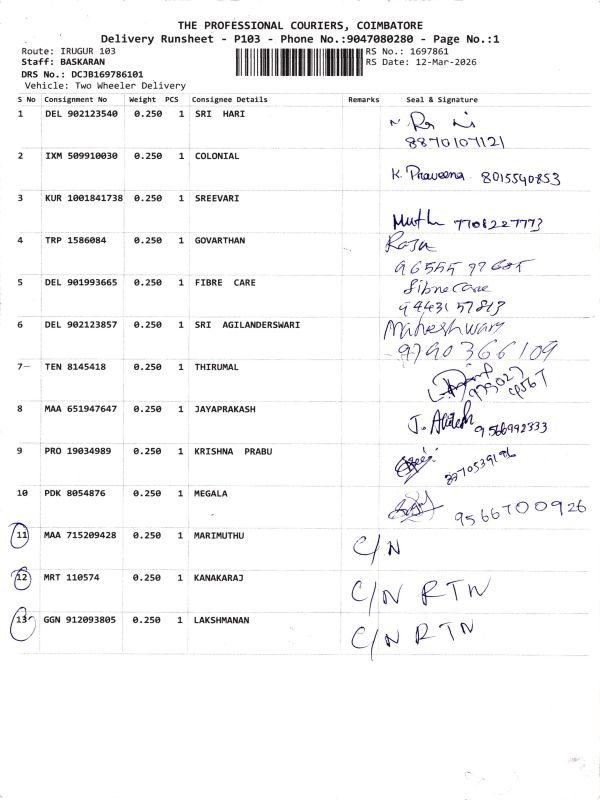 THE PROFESSIONAL COURIERS, COIMBATORE
Delivery Runsheet - P103 - Phone No.:9047080280 - Page No.:1
Route: IRUGUR 103 RS No.: 1697861
Staff: BASKARAN RS Date: 12-Mar-2026
DRS No.: DCJB169786101
Vehicle: Two Wheeler Delivery
S No Consignment No Weight PCS Consignee Details Remarks Seal & Signature
1 DEL 902123540 0.250 1 SRI HARI
8870107121
2 IXM 509910030 0.250 1 COLONIAL
K. Praveena. 8015540853
3 KUR 1001841738 0.250 1 SREEVARI
Muth 7708227773
4 TRP 1586084 0.250 1 GOVARTHAN Raja
5 DEL 901993665 0.250 1 FIBRE CARE fibre care
6 DEL 902123857 0.250 1 SRI AGILANDERSWARI Maheshwary
9790366109
7 TEN 8145418 0.250 1 THIRUMAL
8 MAA 651947647 0.250 1 JAYAPRAKASH
9566992333
9 PRO 19034989 0.250 1 KRISHNA PRABU
10 PDK 8054876 0.250 1 MEGALA
9566700926
11 MAA 715209428 0.250 1 MARIMUTHU C/N
12 MRT 110574 0.250 1 KANAKARAJ C/N RTN
13 GGN 912093805 0.250 1 LAKSHMANAN C/N RTN